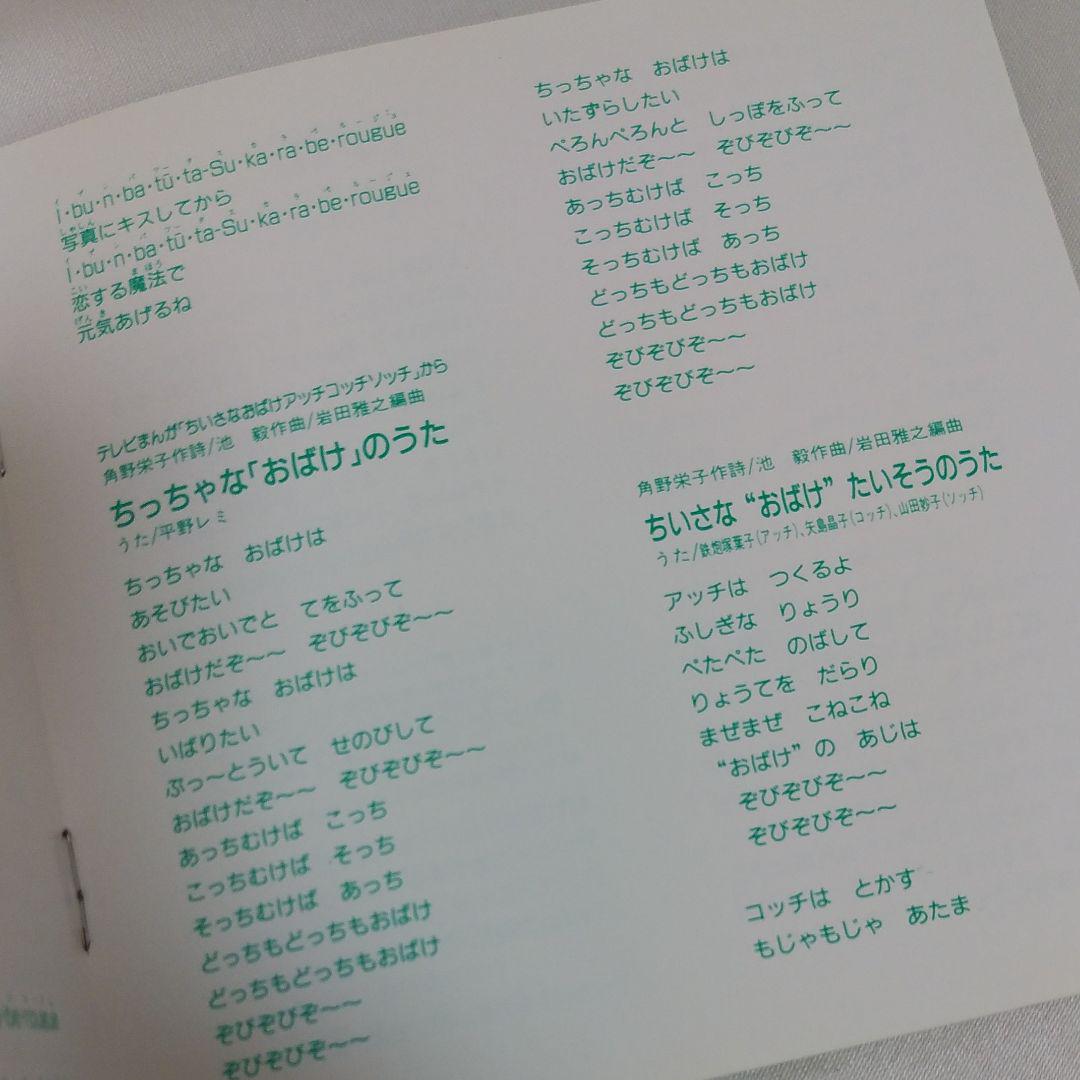 I・bu・n・ba・tū・ta-Su・ka・ra・be・rougue
写真にキスしてから
I・bu・n・ba・tū・ta-Su・ka・ra・be・rougue
恋する魔法で
元気あげるね
テレビまんが「ちいさなおばけアッチコッチソッチ」から
角野栄子作詩/池　毅作曲/岩田雅之編曲
ちっちゃな「おばけ」のうた
うた/平野レミ
ちっちゃな　おばけは
あそびたい
おいでおいでと　てをふって
おばけだぞ〜〜　ぞびぞびぞ〜〜
ちっちゃな　おばけは
いばりたい
ぷっ〜とういて　せのびして
おばけだぞ〜〜　ぞびぞびぞ〜〜
あっちむけば　こっち
こっちむけば　そっち
そっちむけば　あっち
どっちもどっちもおばけ
どっちもどっちもおばけ
ぞびぞびぞ〜〜
ぞびぞびぞ〜〜
ちっちゃな　おばけは
いたずらしたい
ぺろんぺろんと　しっぽをふって
おばけだぞ〜〜　ぞびぞびぞ〜〜
あっちむけば　こっち
こっちむけば　そっち
そっちむけば　あっち
どっちもどっちもおばけ
どっちもどっちもおばけ
ぞびぞびぞ〜〜
ぞびぞびぞ〜〜
角野栄子作詩/池　毅作曲/岩田雅之編曲
ちいさな“おばけ”たいそうのうた
うた/鉄炮塚葉子(アッチ)、矢島晶子(コッチ)、山田妙子(ソッチ)
アッチは　つくるよ
ふしぎな　りょうり
ぺたぺた　のばして
りょうてを　だらり
まぜまぜ　こねこね
“おばけ”の　あじは
ぞびぞびぞ〜〜
ぞびぞびぞ〜〜
コッチは　とかす
もじゃもじゃ　あたま